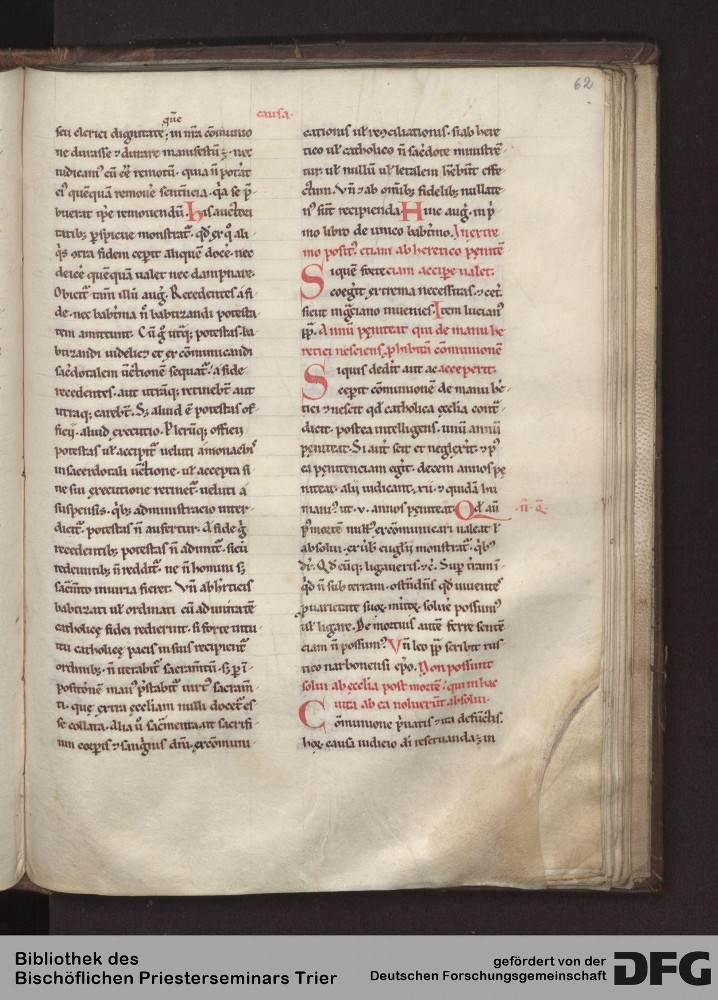 62
causa
que
seu clerici dignitate, in nr̄a cōmunio
ne durasse ⁊ durare manifestū ÷. nec
iudicam' eū eē remotū. quia n̄ poťat
ei' quēquā remoue sentencia. q̇a se p̄
buerat ip̄e remouendū. his auctori
tatib; ꝑspicue monstrat̄. qd̄ ex q̊ ali
q̇s cōtra fidem cepit aliquē docē. nec
deicē quēquā ualet nec dampnare.
Obicit̄ tam̄ illū aug̓. Recedentes a fi
de. nec babtīma n̄ babtizandi potesta
tem amittunt. Cū g̊ ut̄q; potestas. ba
btizandi uidelic⁊ et excōmunicandi
sac̓dotalem ūctionē sequat̄. a fide
recedentes. aut utrāq; retinebt̄ aut
utraq; carebt̄. S; aliud ē potestas of
ficii. aliud executio. Plerūq; officii
potestas ul̓ accipit̄ ueluti a monachis
in sacerdotali ūctione. ul̓ accepta si
ne sui executione retinet̄. ueluti a
suspensis. q̇b; administracio inter
dicit̄. potestas n̄ aufertur. A fide g̊
recedentib; potestas n̄ adimit̄. sicut
redeuntib; n̄ reddit̄. ne n̄ homini s;
sac̓mto iniuria fieret. Vn̄ ab h̓eticis
babtizati ul̓ ordinati cū ad unitatē
catholicę fidei redierint. si forte intu
itu catholicę pacis in suis recipient̄
ordinib;. n̄ iterabit̄ sacramtū. s; ꝑ ī
positōnē man' p̄stabit̄ uirt' sacram̄
ti. quę extra ęccliam nulli docet̄ es
se collata. Alia ū sac̓menta ut sacrifi
um corp̓is ⁊ sanguīs dn̄i. excōmuni
cationis ul̓ reconciliationis. si ab here
tico ul̓ catholico n̄ sac̓dote ministrē
tur. ul̓ nullū ul̓ letalem habent effe
ctum. Vn̄ ⁊ ab om̄ib; fidelib; nullate
n' sūt recipienda. Hinc aug̓. in p̓
mo libro de unico babt̓mo. In extre
mo posit' etiam ab heretico penitē
Siquē forte ciam accipe ualet.
coegit extrema necessitas. ⁊ cet̓.
sicut in g̊ciano inuenies. Item lucian'
pp̄. Annū peniteat qui de manu he
retici nesciens ꝓhibitā cōmunionē
Siquis dedit aut ac acceperit.
ceperit cōmunionē de manu he
tici ⁊ nescit qd̄ catholica ęcclia cont̓
dicit. postea intelligens. unū annū
peniteat. Si aut̄ scit et neglexit. ⁊ p'
ea penitenciam egit. decem annos pę
niteat. alii iudicant. xii. ⁊ quidā hu
mani' ut .v. annos peniteat. Qd̄ aū
.n̄. q̄.
p' mortē null' excōmunicari ualeat ul̓
absolui. ex ūb̓. euglii monstrat̄. q̇b'
dr̄. Qd̄cūq; ligaueris. ⁊c̄. Sup̓ t̓ram ī
q̇d n̄ sub terram. ostendēs qd̄ uiuentes
ꝓ uarietate suoꝝ m̓itoꝝ. soluē possum'
ul̓ ligare. De mortuis autē ferre sentē
ciam n̄ possum'. Vn̄ leo pp̄ scribit rus
tico narbonensi ep̄o. Non possunt
solui ab ęcclia post mortē. qui in hac
uita ab ea noluerūt absolui.
Cōmunione p̓uatis ⁊ ita defūctis.
hoꝝ causa iudicio dī reseruanda ÷ in
Bibliothek des
Bischöflichen Priesterseminars Trier
gefördert von der
Deutschen Forschungsgemeinschaft
DFG